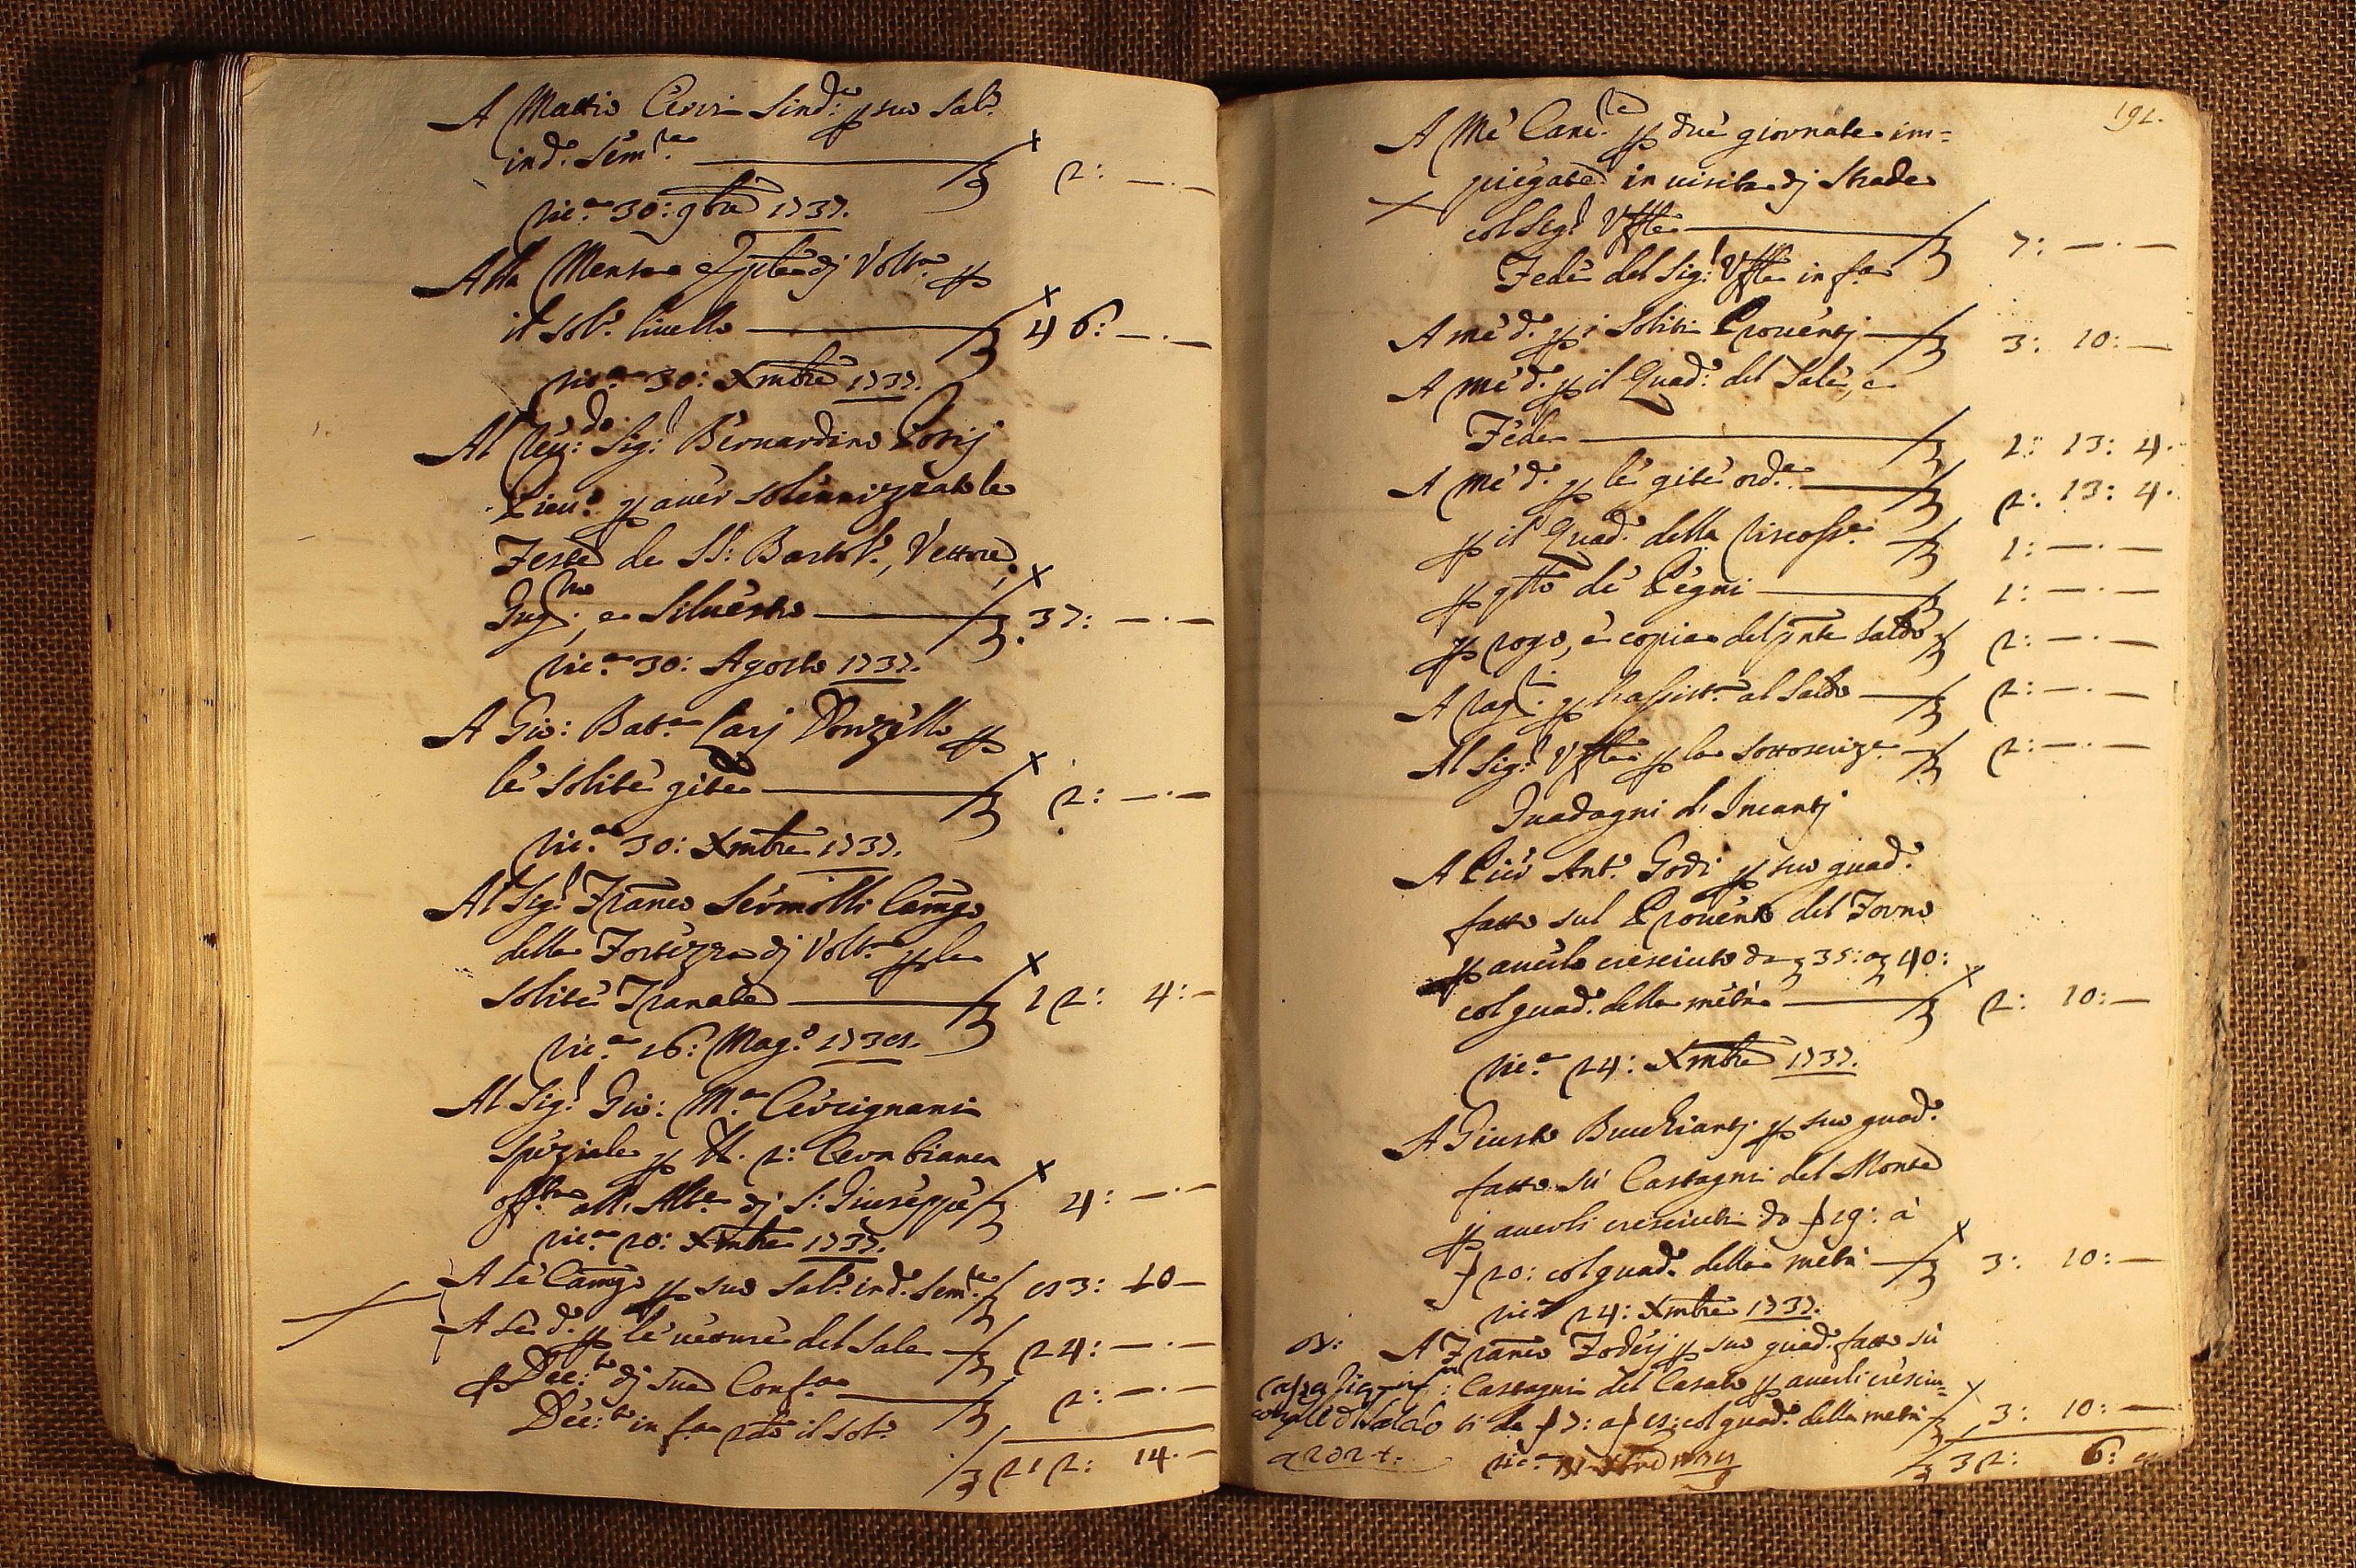 A Mattio Cerri Sind:co p suo Sal:o
ind:o Sem:re 2: —.—
Ric:a 30: 9bre 1737.
Alla Mensa Epple di Volt:a p
il sol:o livello 46: —.—
Ric:a 30: Xmbre 1737.
Al Reu:do Sig:r Bernardino
Pieu:o p auer solennizzato le
Feste de SS: Bartol:o, Vettore,
e Siluestro 37: —.—
Ric:a 30: Agosto 1737.
A Gio: Bat:a Donzello p
le solite gite 2: —.—
Ric:a 30: Xmbre 1737.
Al Sig:r Franco Sermolli Camgo
della Fortezza di Volt:a p le
solite Tranate 12: 4: —
Ric:a 16: Mag:o 1738.
Al Sig:r Gio: M:a Cercignani
Speziale p lb. 2: Cera bianca
all' Alt:e di S: Giuseppe 4: —.—
Ric:a 20: Xmbre 1737.
A se Camgo p suo Sal:o ind:o Sem:re 83: 10 —
A se d:o p le vetture del Sale 24: —.—
p Dec:to di sua Conf:a 2: —.—
Dec:to in f:a il sol:o
212: 14. —
191.
A Me Canc:re p due giornate im=
piegate in uisita di Strade
col Sig:r Uffle 7: —.—
Fede del Sig:r Uffle in f:a
A me d:o p i soliti Prouenti 3: 10: —
A me d:o p il Quad:o del Sale, e
Fede 1: 13: 4.
A me d:o p le gite ord:e 2: 13: 4.
p il Quad:o della Riscoss:e 1: —.—
p gtto de Pegni 1: —.—
p rogo, e copia del pnte saldo 2: —.—
A rag:ri p l'assist:a al Saldo 2: —.—
Al Sig:r Uffle p la sottoscriz:e 2: —.—
Guadagni d'Incanti
A Pier Ant:o Godi p suo guad:o
fatto sul Prouento del Forno
p auerlo cresciuto da 35: a 40:
col guad:o della metà 2: 10: —
Ric:a 24: Xmbre 1737.
A Giusto Bucchianti p suo guad:o
fatto sù Castagni del Monte
p auerli cresciuti da f 19: à
f 20: col guad:o della metà 3: 10: —
Ric:a 24: Xmbre 1737.
A Franco p suo guad:o fatto sù
Castagni del Casato p auerli cresciu=
ti da f 7: a f 8: col guad:o della metà 3: 10: —
a 202 t:
Ric:a
32: 6: 8